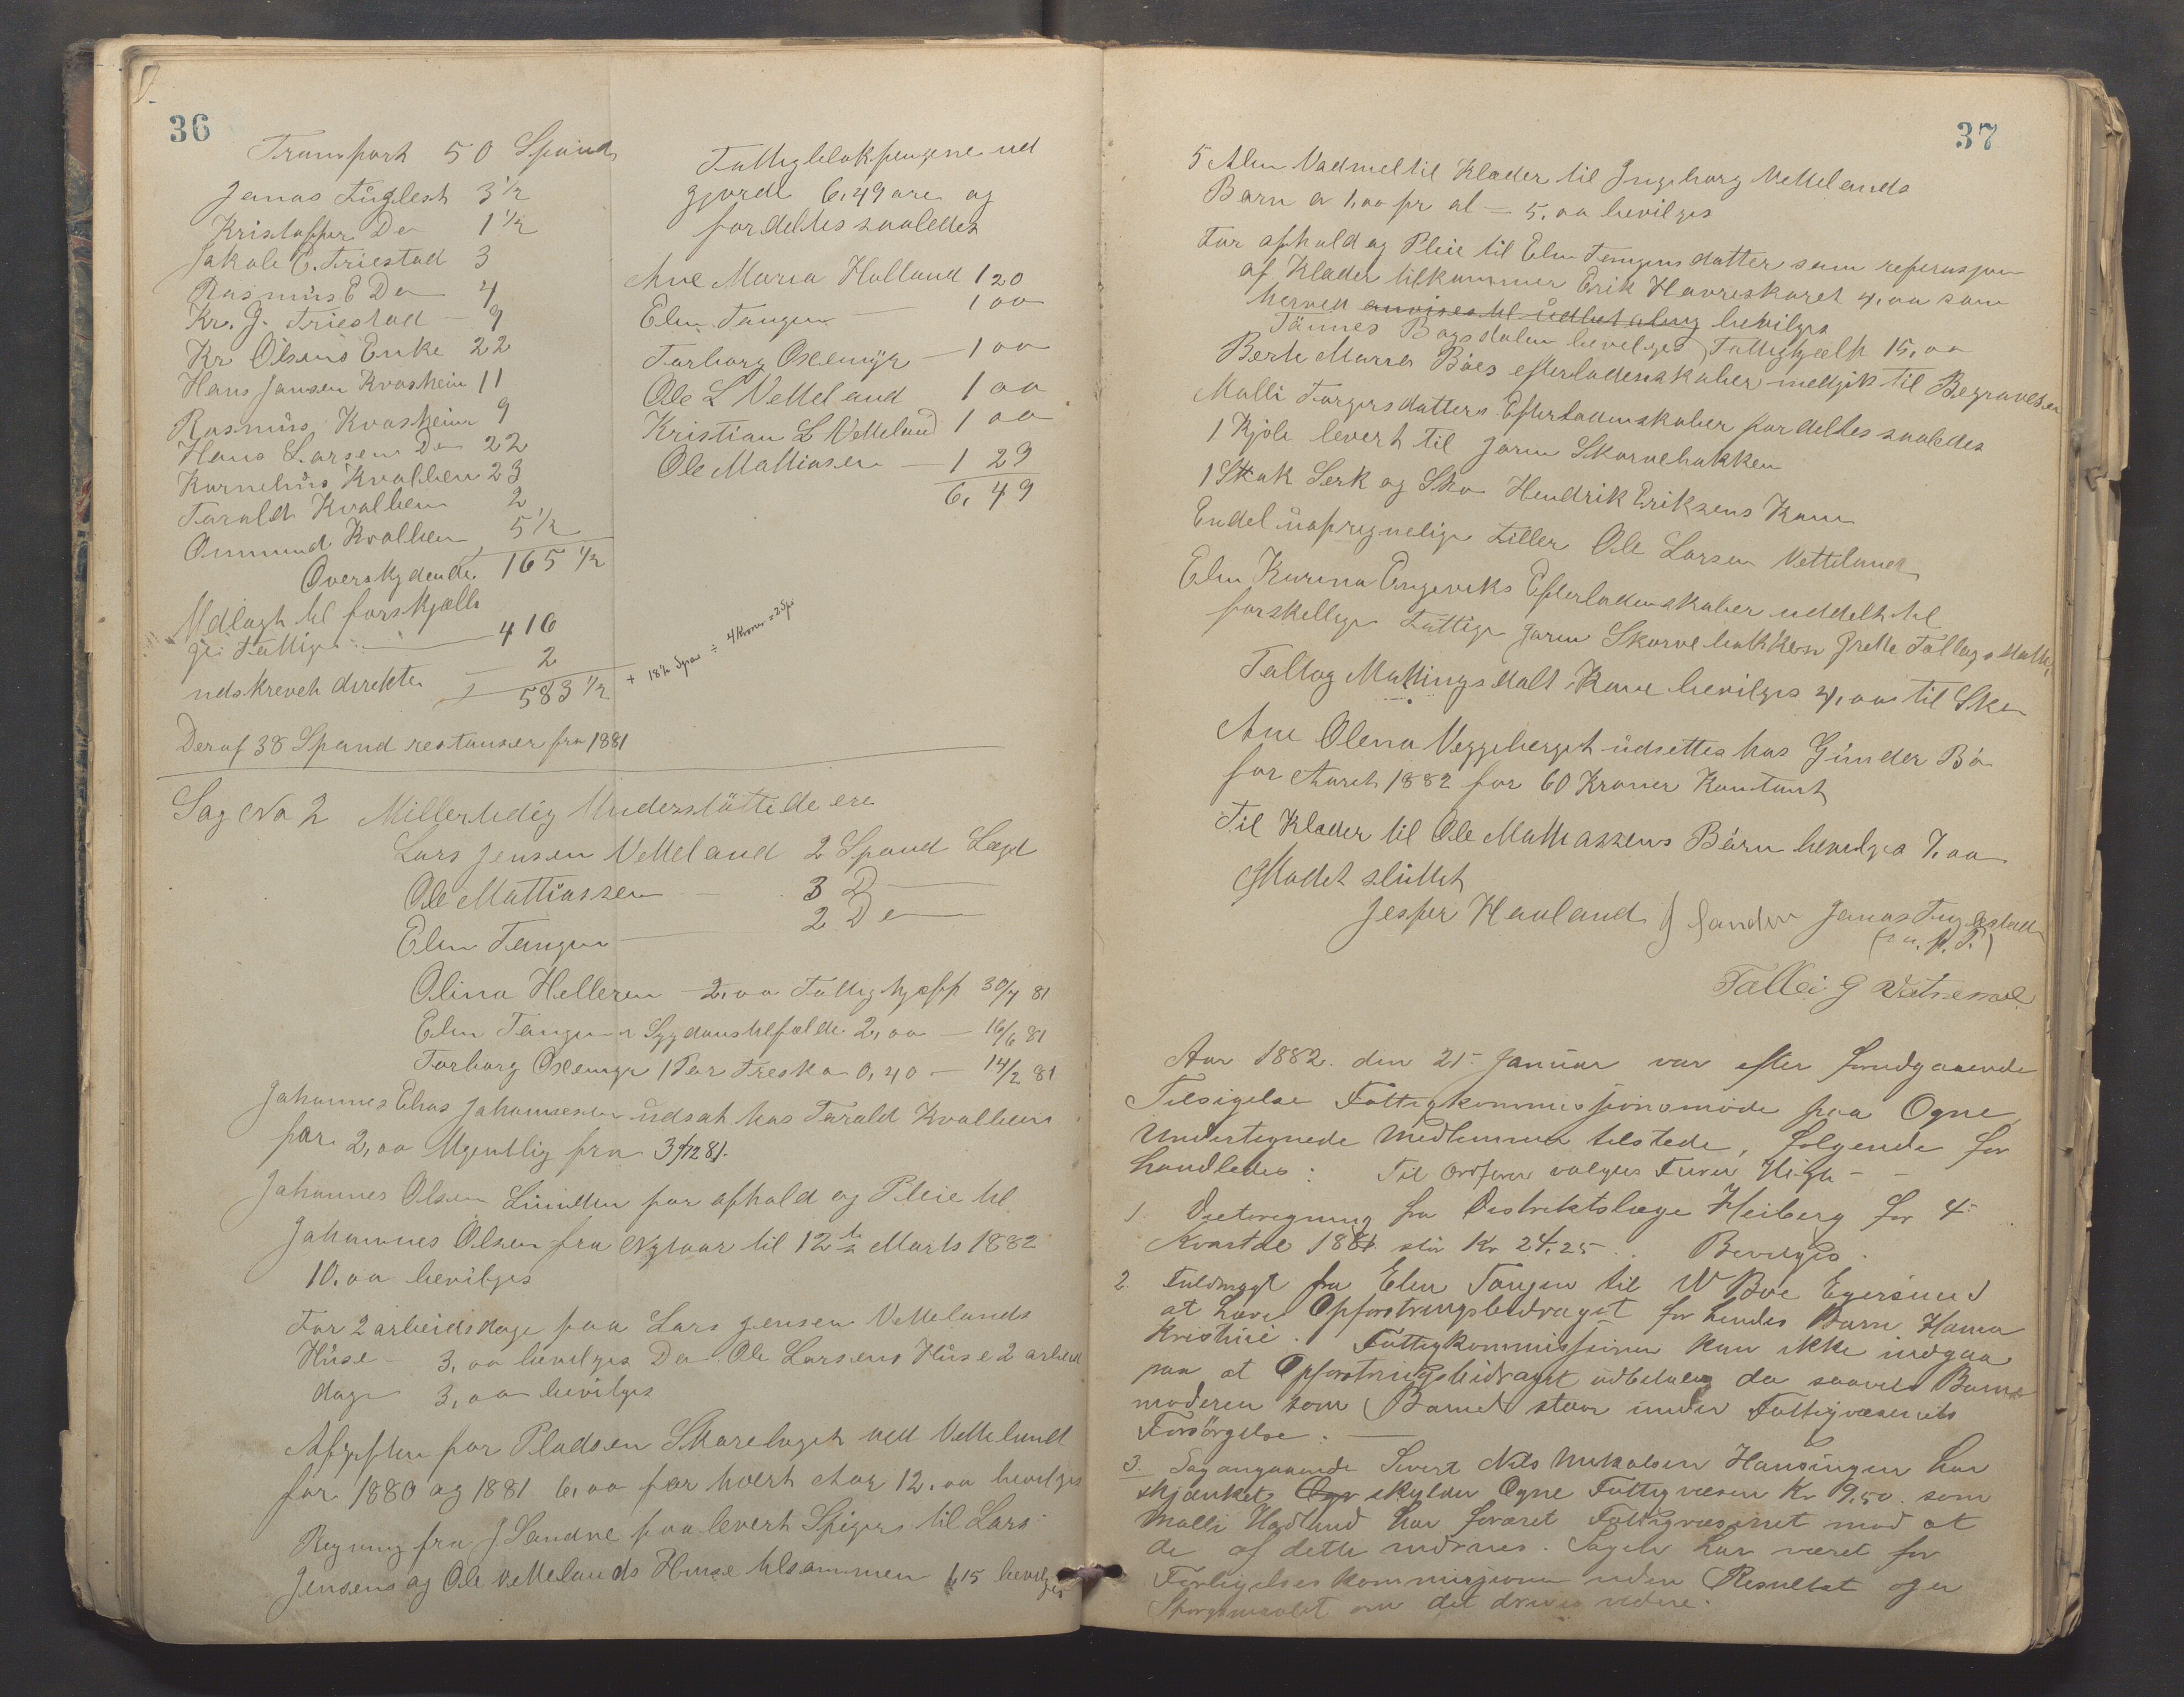 36
Transport 50 Spand
Jonas Fuglest 3 1/2
Kristoffer Do 1 1/2
Jakob E. Friestad 3
Rasmus E Do 4
Kr. G. Friestad 9
Kr Olsens Enke 22
Hans Jansen Kvashein 11
Rasmus Kvasheim 9
Hans Larsen Do 22
Kornelius Kvalben 23
Tarald Kvalben 2
Onmund Kvalben 5 1/2
Overskydende 165 1/2
Udlagt til forskjælli
ge Fattige 416
udskrevet direkte 2
583 1/2 + 18 1/2 Span ÷ 4 Kroner = 2 Sp.
Deraf 38 Spand restanser fra 1881
Fattigblokpengene ud
gjorde 6,49 øre og
fordeltes saaledes
Ane Maria Holland 1 20
Elen Tangen 1 00
Torborg Oxemyr 1 00
Ole L Vetteland 1 00
Kristian L Vetteland 1 00
Ole Mattiasen 1 29
6,49
Sag No 2 Midlertidig Understøttede ere
Lars Jensen Vetteland 2 Spand Lægd
Ole Mattiassen 3 D
Elen Tangen 2 Do
Olina Helleren 2,00 Fattighjælp 30/7 81
Elen Tangen Sygdomstilfælde 2,00 — 16/6 81
Torborg Oxemyr 1 Par Tresko 0,40 — 14/2 81
Johannes Elias Johannessen udsat hos Tarald Kvalben
for 2,00 Ugentlig fra 3/12 81.
Johannes Olsen for ophold og Pleie til
Johannes Olsen fra Nytaar til 12te Marts 1882
10,00 bevilges
For 2 arbeidsdage paa Lars Jensen Vettelands
Huse 3,00 bevilges Do Ole Larsens Huse 2 arbeids
dage 3,00 bevilges
Afgiften for Pladsen Skarelaget ved Vetteland
for 1880 og 1881 6,00 for hvert Aar 12,00 bevilges
Regning fra J. Sandve paa levert Spiger til Lars
Jensens og Ole Vettelands Huse tilsammen 6,15 bevilges
37
5 Alen Vadmel til Klæder til Ingeborg Vettelands
Barn a 1,00 pr al = 5,00 bevilges
For ophold og Pleie til Elen Tangens datter som
af Klæder tilkommer Erik Havreskaret 4,00 som
herved anvises til udbetaling bevilges
Tønnes Bogsdalen bevilges Fattighjælp 15,00
Berte Maria Bøes efterladenskaber medgik til Begravelsen
Malli Torgersdatters Efterladenskaber fordeltes saaledes
1 Kjole levert til Joren Skorvebakken
1 Stak Serk og Sko Hendrik Eriksens Kone
Endel uopregnelige Filler Ole Larsen Vetteland
Elen Karina Engeviks Efterladenskaber uddelt til
forskellige Fattige Joren Skorvebakken Grete
Tallag Kone bevilges 4,00 til Sko
Ane Olena Veggeberget udsettes hos Gunder Bø
for Aaret 1882 for 60 Kroner Kontant
Til Klæder til Ole Mathiassens Børn bevilges 7,00
Mødet sluttet
Jesper Havland J Sandve Jonas Fuglestad
(m. p. P.)
Tallei G
Aar 1882. den 21. Januar var efter forudgaaende
Tilsigelse Fattigkommissionsmøde paa Ogne,
Undertegnede Medlemmer tilstede, følgende for
handledes: Til Ordfører valgtes
1. Dietregning fra Distriktslæge Heiberg for 4.
Kvartal 1881 stor Kr 24,25. Bevilges.
2. Fuldmagt fra Elen Tangen til W Bøe Egersund
at hæve Opfostringsbidraget for hendes Barn Hanna
Kristine. Fattigkommissionen kan ikke indgaa
paa at Opfostringsbidraget udbetales da saavel Barne
moderen som Barnet staar under Fattigvæsenets
Forsørgelse. —
3. Sag angaaende Sivert Nils Mikalsen Hausingen har
skjænket Ogn skylder Ogne Fattigvæsen Kr 9,50. som
Malli Hadland har foræret Fattigvæsenet mod at
de af dette inddrives. Sagen har været for
Forligelseskommissionen uden Resultat og er
Spørgsmaalet om det drives videre.